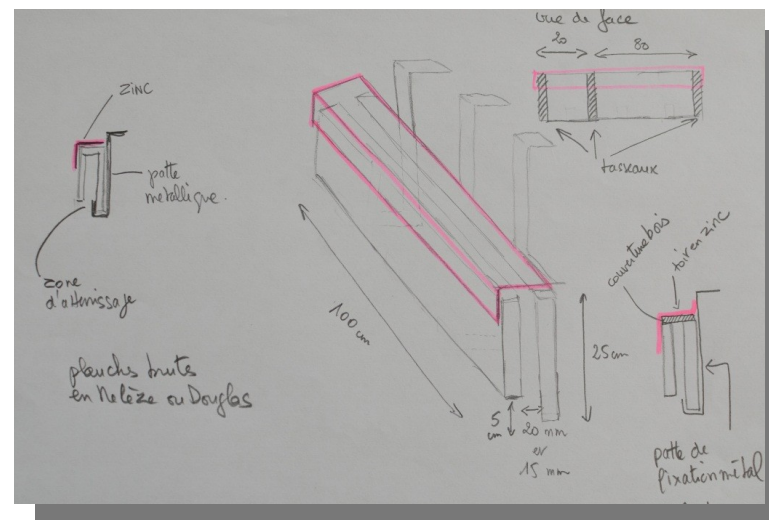 vue de face
20
80
taskaux
ZINC
patte
métallique.
zone
d'atterrissage
planches brutes
en Mélèze ou Douglas
100 cm
25 cm
5
cm
20 mm
or
15 mm
couverture bois
toit en zinc
patte de
fixation métal